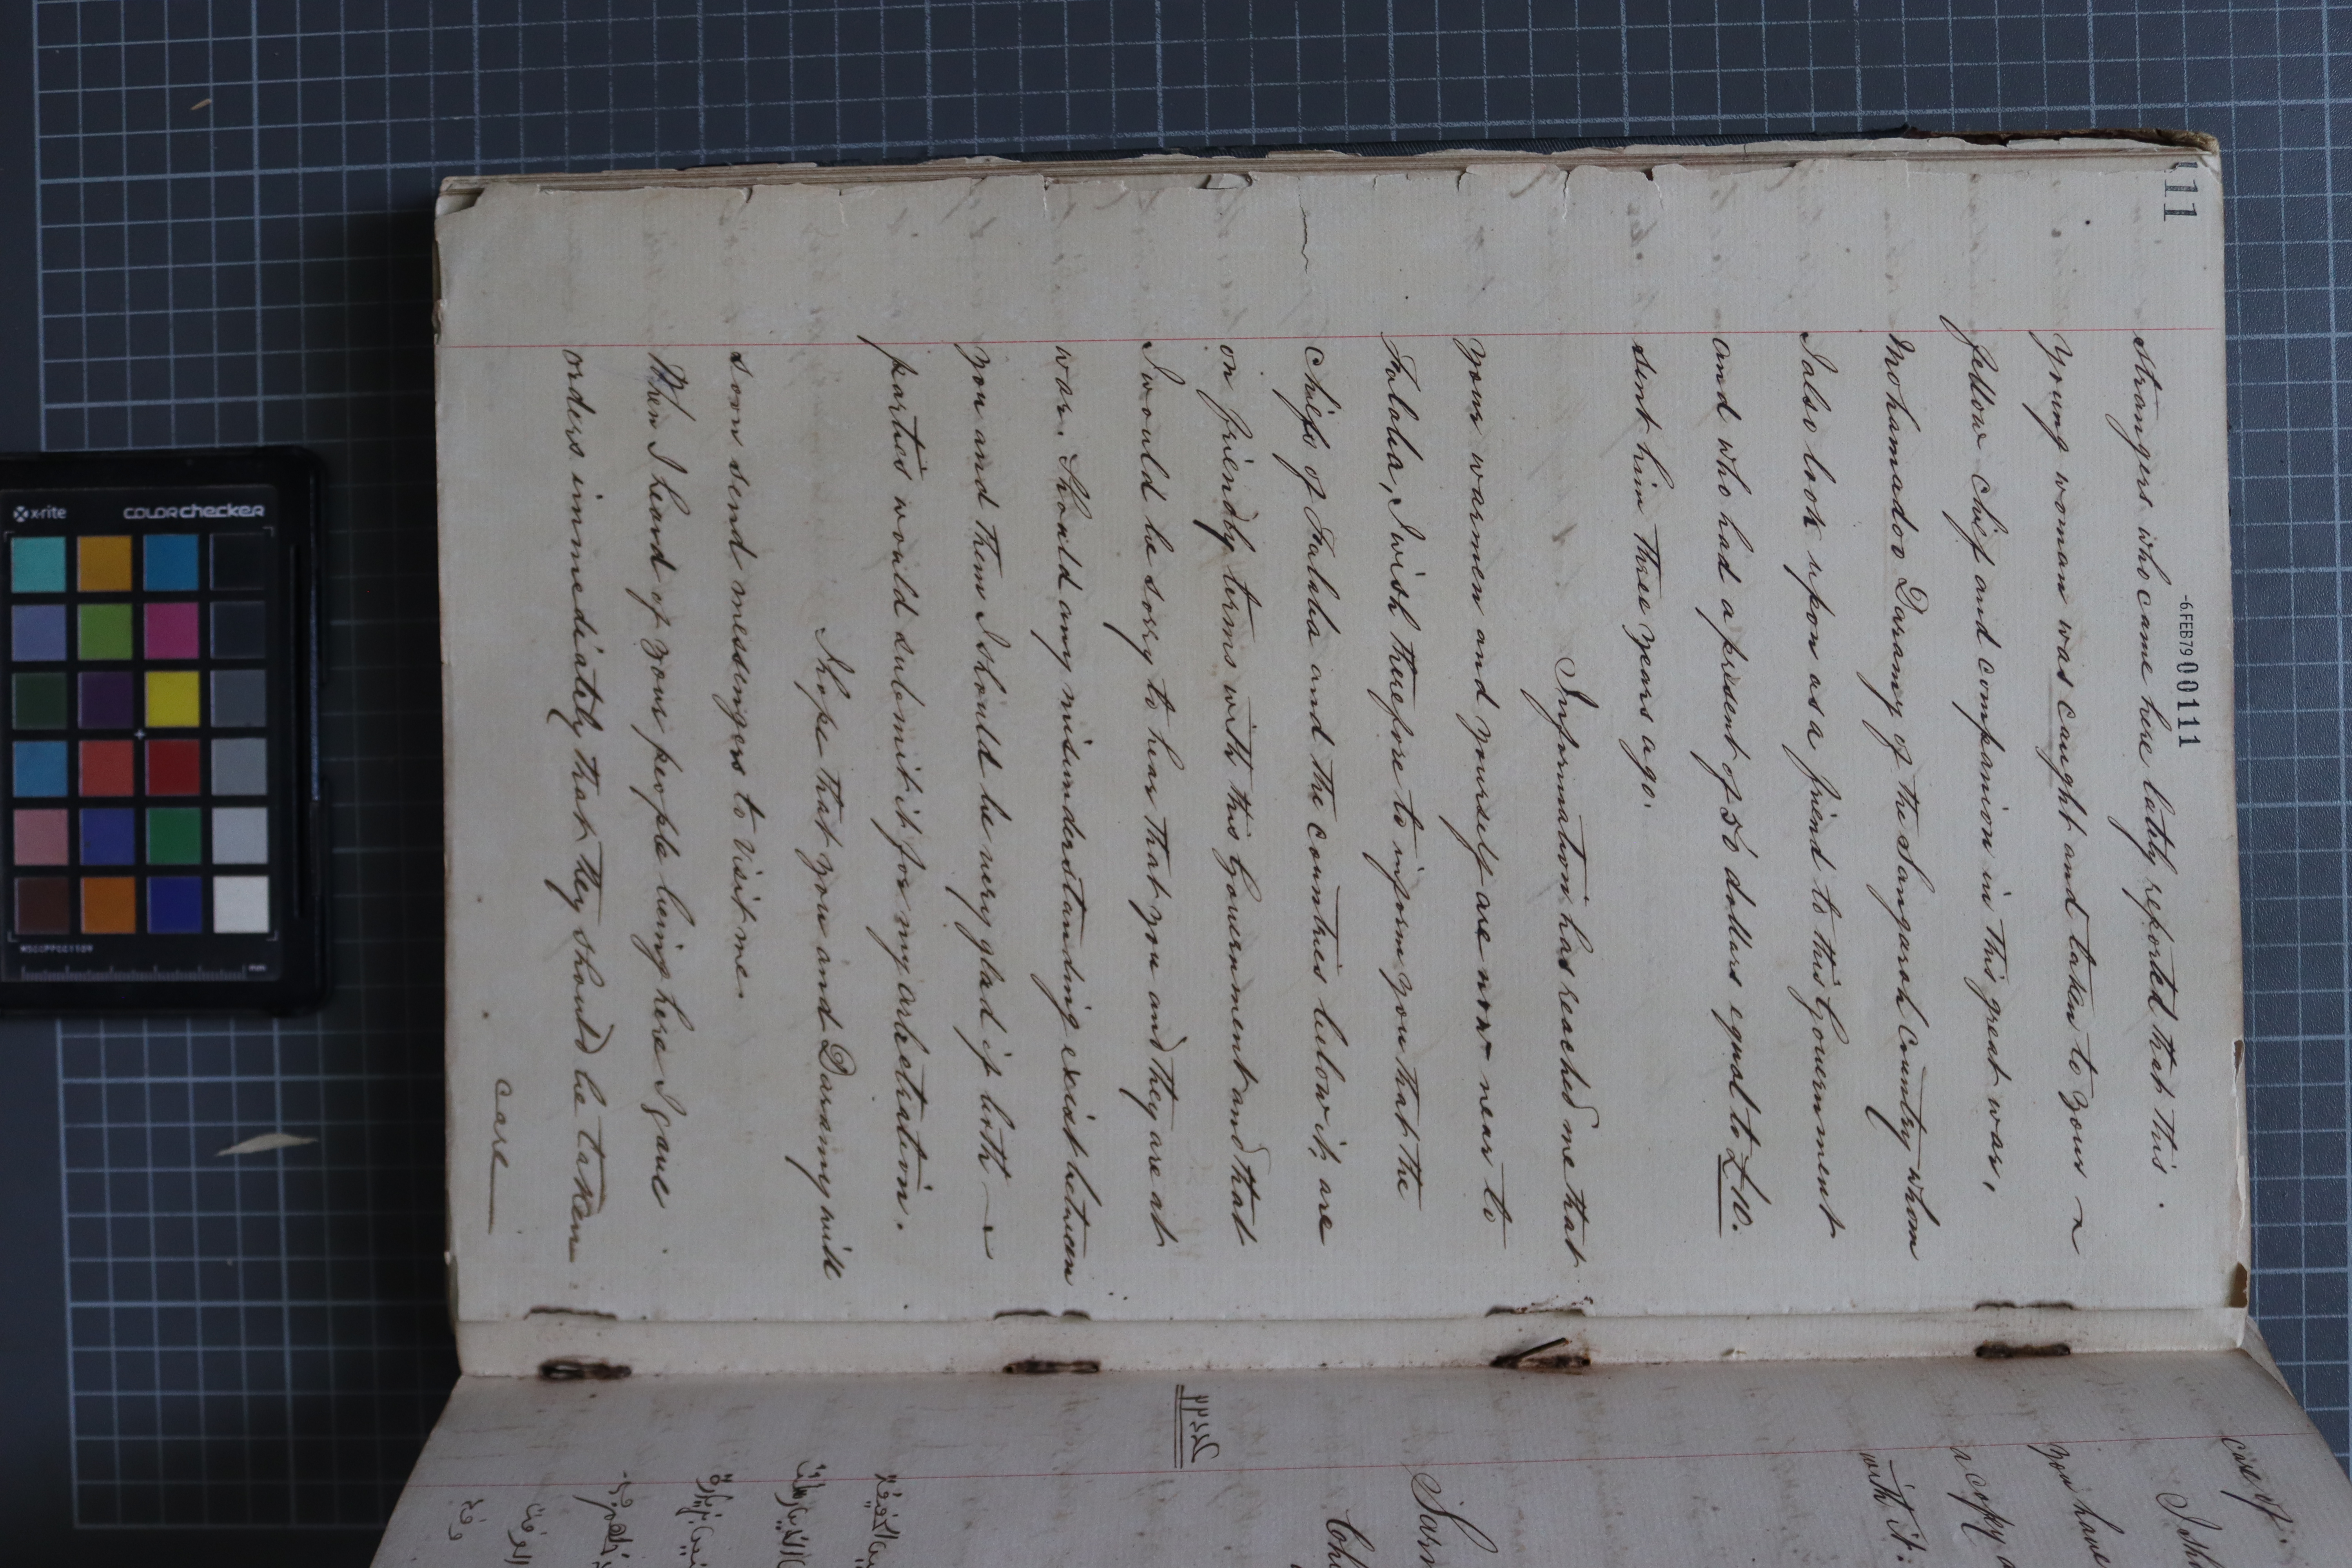 111
-6 FEB 79 00111
strangers who came here lately reported that this
young woman was caught and taken to your
fellow chief and companion in this great war,
Mohamadoo Daramy of the Sangarah Country whom
I also look upon as a friend to this Government
and who had a present of 50 dollars equal to £10.
sent him three years ago.
Information has reached me that
your warmen and yourself are now near to
Falaba, I wish therefore to inform you that the
chiefs of Falaba and the countries below it, are
on friendly terms with this Government and that
I would be sorry to hear that you and they are at
war. Should any misunderstanding exist between
you and them I should be very glad if both
parties would submit it for my arbitration.
I hope that you and Daramy will
soon send messengers to visit me.
When I heard of your people being here I gave
orders immediately that they should be taken
care
case of
you have
a copy
with it.
x-rite
colorchecker
MSCCPPCC1109
mm